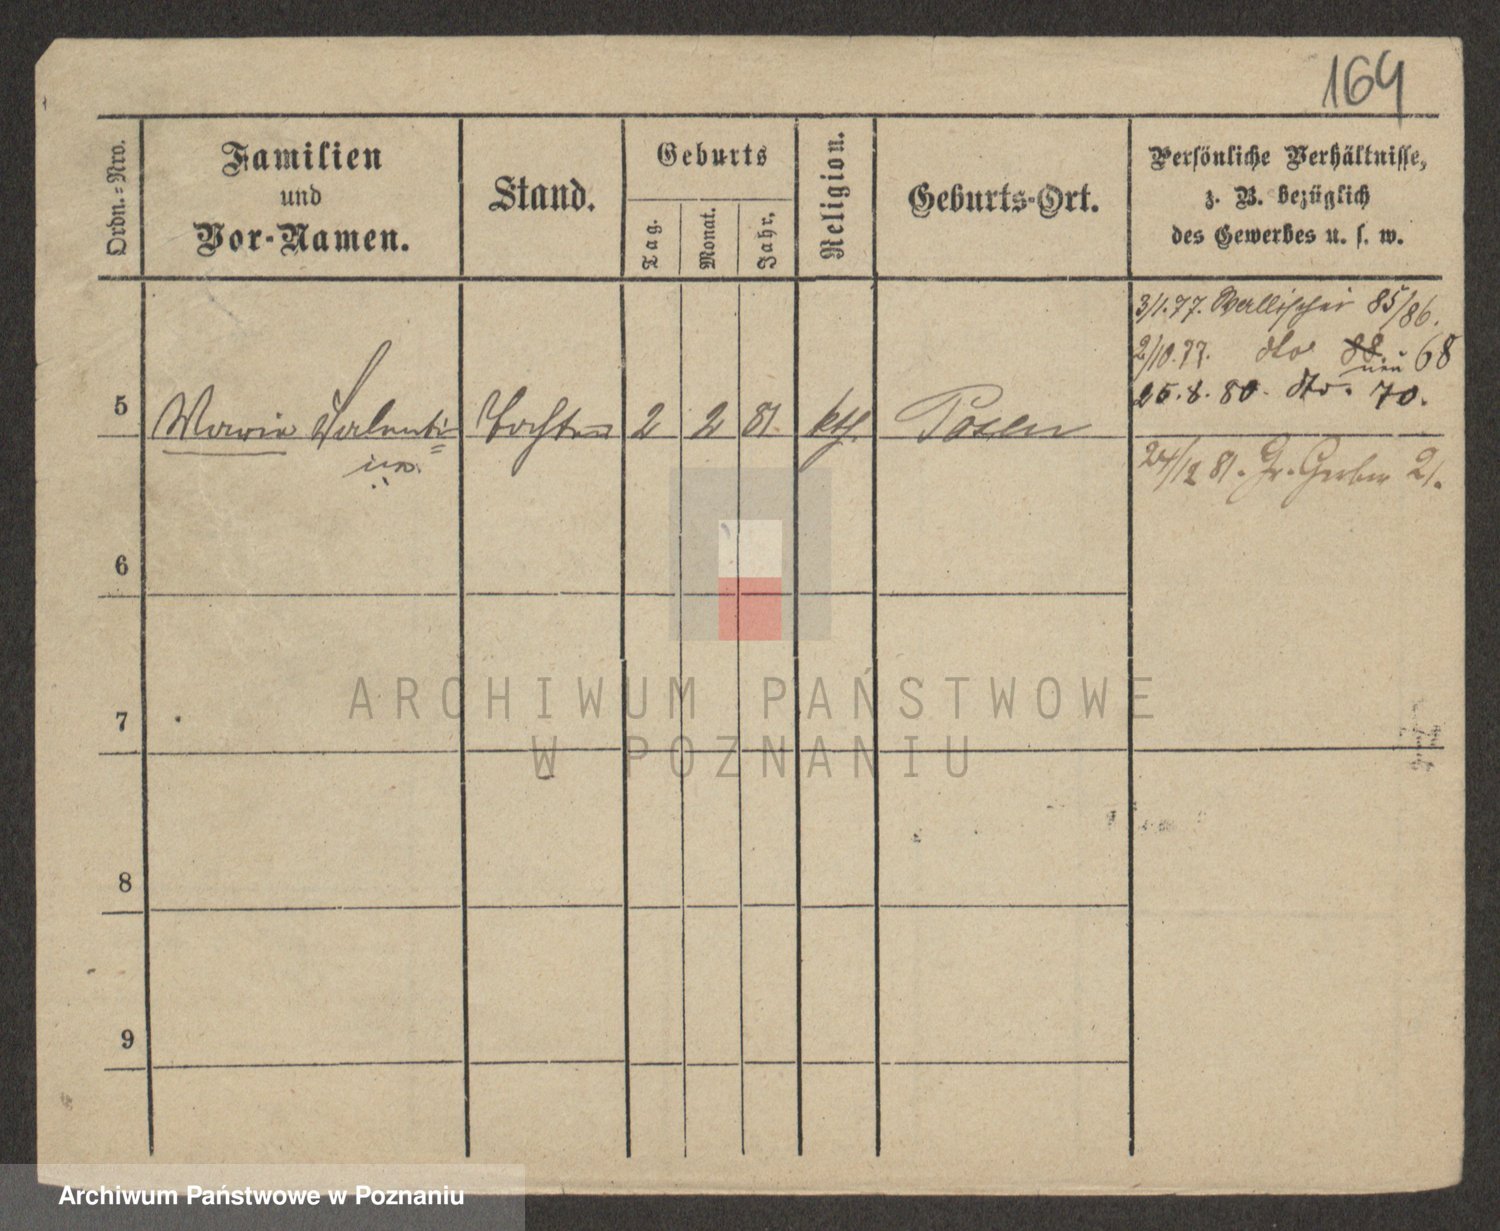 164
Ordn.-Nro.
Familien
und
Vor-Namen.
Stand.
Geburts
Tag.
Monat.
Jahr.
Religion.
Geburts-Ort.
Persönliche Verhältnisse,
z. B. bezüglich
des Gewerbes u. s. w.
3/1.77. Wallischei 85/86.
2/10.77. dto 88. neu 68
25.8.80. dto. 70.
5 Marie Valenti=
na. Tochter 2 2 81 kth. Posen
24/12 81. Gr. Gerber 21.
6
7
8
9
ARCHIWUM PAŃSTWOWE
W POZNANIU
Archiwum Państwowe w Poznaniu